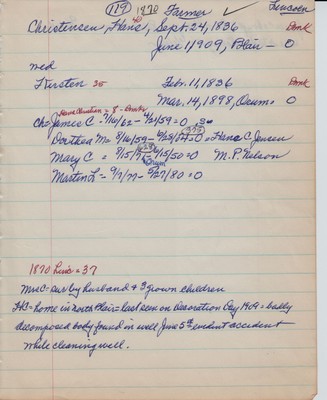 119 1870 Farmer ✓ Lincoln
Christensen, Hans, 40 Sept. 24, 1836 Dmk
June 1 1909, Blair - O
wed
Kirsten 35 Feb. 11, 1836 Dmk
Mar. 14, 1898, Orum = O
Ch = James C - 7/16/62 - 4/4/59 = O
Dorthea M = 8/16/59 - = Hans C Jensen
Mary C = 9/15/71 - 6/15/50 = O M. P. Nelson
Martin L = 9/7/77 - 5/27/80 = O
1870 Linc = 37
Mrs C - sur by husband & 3 grown children
HC = home in North Blair = last seen on Decoration Day 1909 = badly
decomposed body found in well June 5th evident accident
while cleaning well.